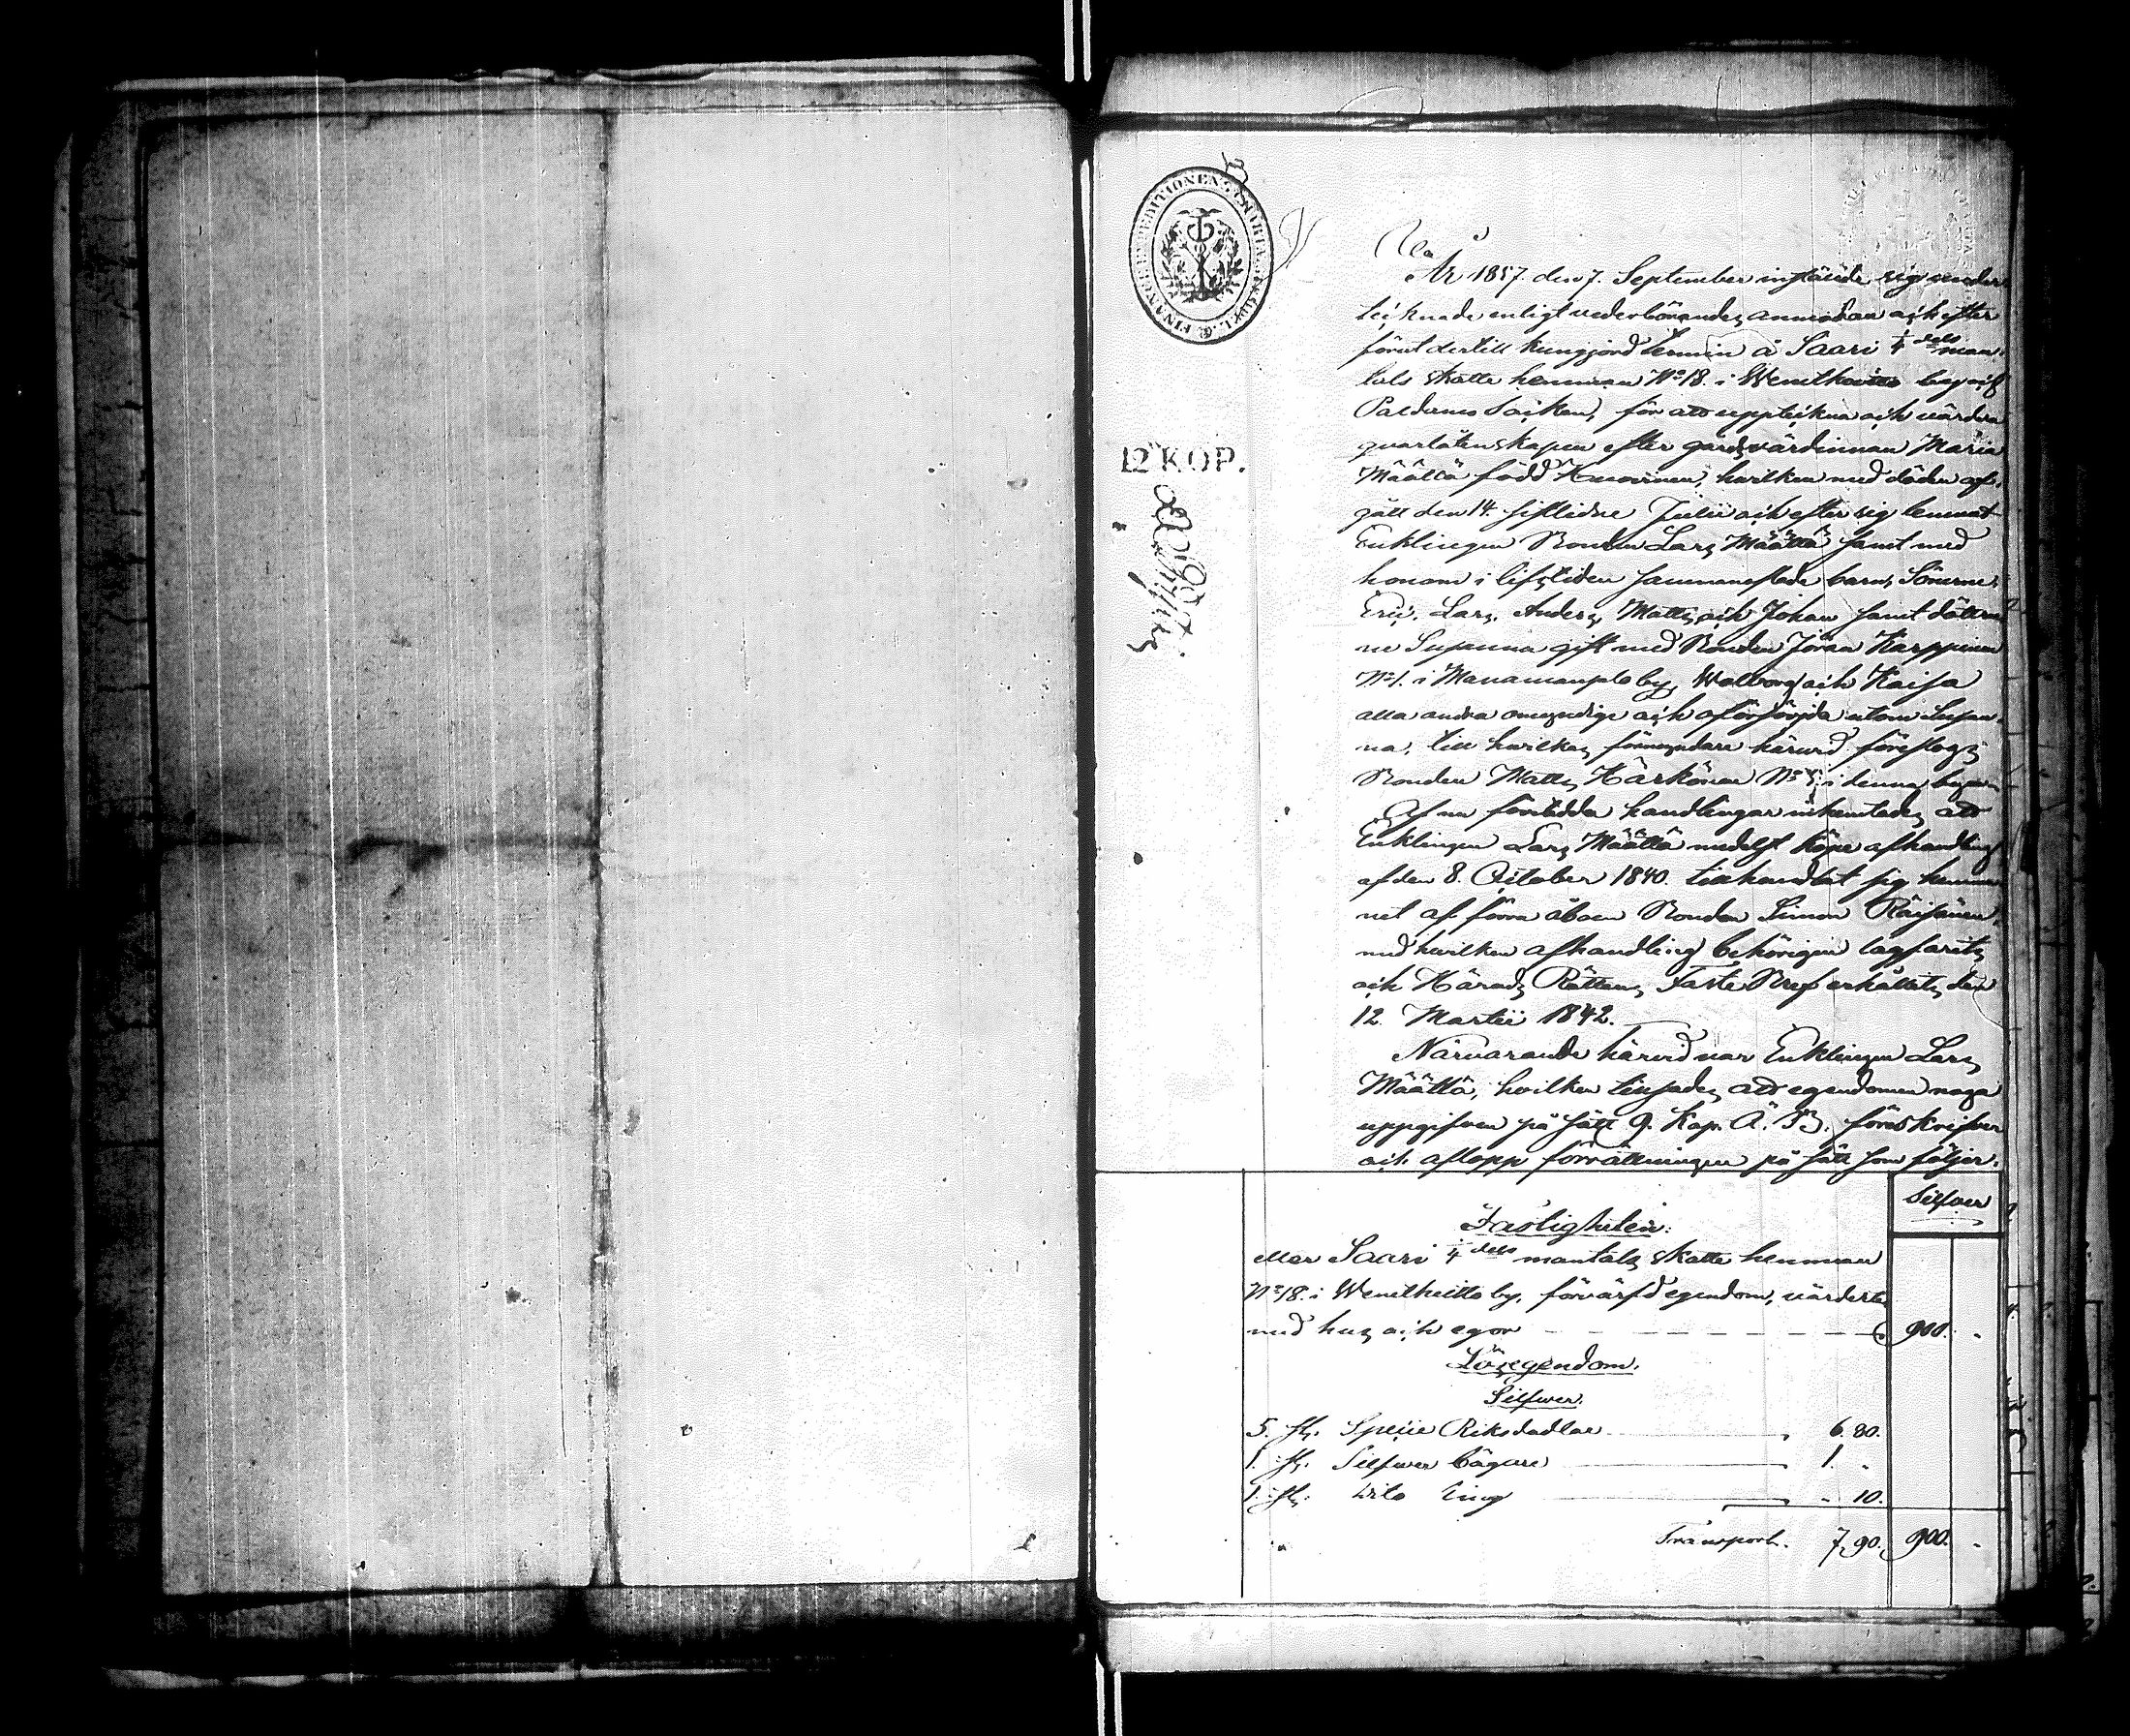 FINANCE EXPEDITIONENS CHARTA
12 KOP.
År 1857. den 7. September instälde sig under
tecknade enligt vederbörandes anmodan och efter
förut dertill kungjord termin å Saari 1/4 dels man
tals skatte hemman No 18. i Wenetheitto by af
Paldamo Socken, för att uppteckna och värdera
qvarlåtenskapen efter gårdsvärdinnan Maria
Määttä född Huovinen, hvilken med döden af,
gått den 14. sistlidne Julii och efter sig lemnat
Enklingen Bonden Lars Määttä samt med
honom i lifstiden sammanaflade barn, Sönerne,
Eric, Lars, Anders, Matts och Johan samt döttrar
ne Susanna gift med Bonden Jöran Karppinen
No 1. i Manamansalo by, Walborg och Kaisa
alla andra omyndige och oförsörjda utom Susan,
na, till hvilkas förmyndare härvid föreslogs
Bonden Matts Härkönen No i denna by.
Af nu företedda handlingar inhemtades att
Enklingen Lars Määttä medelst köpe afhandling
af den 8. October 1840. tillhandlat sig hemma
net af förra åboen Bonden Simon Räisänen,
med hvilken afhandling behörigen lagfarits
och Härads Rättens Faste Bref erhållits den
12. Martii 1842.
Närvarande härvid var Enklingen Lars
Määttä, hvilken tillsades att egendomen noga
uppgifva på sätt 9. Kap. Ä. B. föreskrifver
och aflopp förrättningen på sätt som följer.
Silfver
Fastigheten:
eller Saari 1/4 dels mantals skatte hemman
No 18. i Wenetheitto by, förvärfd egendom, värderas
med hus och egor 900. „
Lösegendom.
Silfver.
5. st. Specie Riksdadlar 6. 80.
1. st. Silfver bägare 1. „
1. st. dito ring „ 10.
Transport. 7,90. 900. „